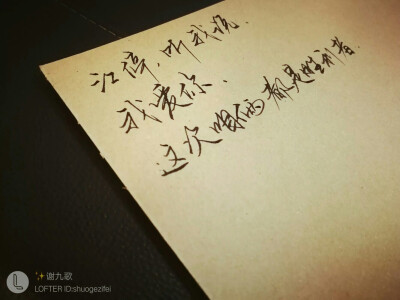 江停,听我说.
我爱你、
这次咱俩都是胜利者.
✨谢九歌
LOFTER ID:shuogezifei